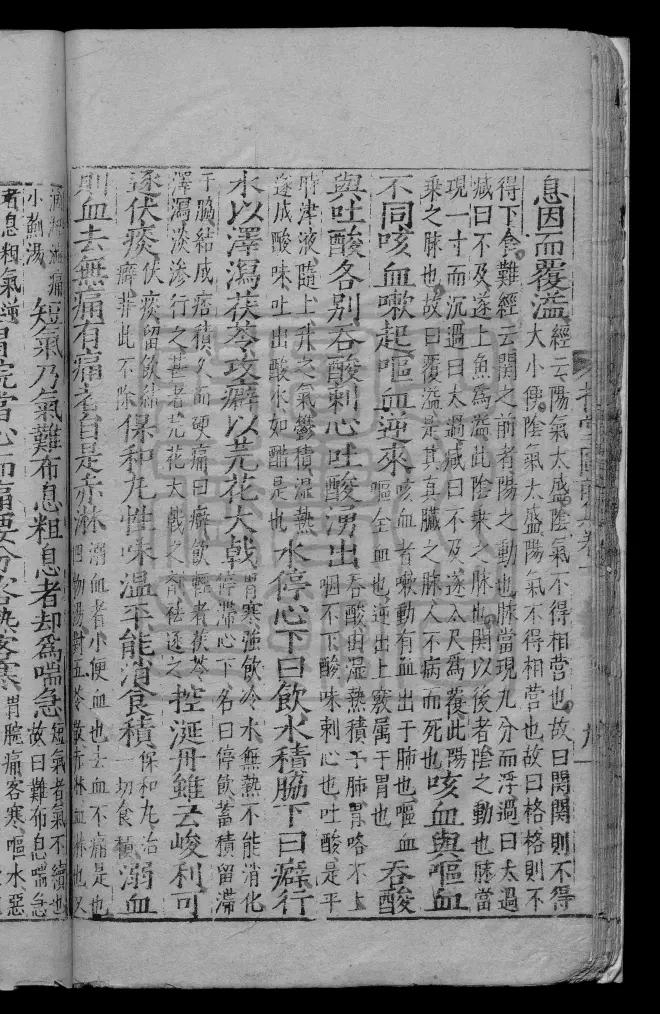 息因而覆溢 經云陽氣太盛陰氣不得相營也故曰関関則不得
大小便陰氣太盛陽氣不得相營也故曰格格則不
得下食難經云関之前者陽之動也脉當現九分而浮過曰太過
减曰不及遂上魚為溢此陰乗之脉也関以後者陰之動也脉當
現一寸而沉過曰太過减曰不及遂入尺為覆此陽
乗之脉也故曰覆溢是其真臟之脉人不病而死也 咳血與嘔血
不同咳血嗽起嘔血逆來 咳血者嗽動有血出于肺也嘔血
嘔全血也逆出上竅属于胃也 吞酸
與吐酸各别吞酸刺心吐酸湧出 吞酸由湿熱積于肺胃咯不上
咽不下酸味刺心也吐酸是平
時津液隨上升之氣鬱積湿熱
遂成酸味吐出酸水如醋是也 水停心下曰飲水積脇下曰癖行
水以澤瀉茯苓攻癖以芫花大戟 胃寒強飲冷水無熱不能消化
停滯心下名曰停飲蓄積留滯
于脇結成痞積久而硬痛曰癖飲輕者茯苓
澤瀉淡滲行之甚者芫花大戟之剤袪逐之 控涎丹雖云峻利可
逐伏痰 伏痰留飲綿
癖非此不除 保和丸性味温平能消食積 保和丸治
一切食積 溺血
則血去無痛有痛者自是赤淋 溺血者小便血也去血不痛是也
四物湯對五苓散赤淋血淋也又
淋痛
小薊湯 短氣乃氣難布息粗息者却為喘急 短氣者氣不續也
故曰難布息喘急
者息粗氣逆 胃脘當心而痛要分客熱客寒 胃脘痛客寒嘔水惡